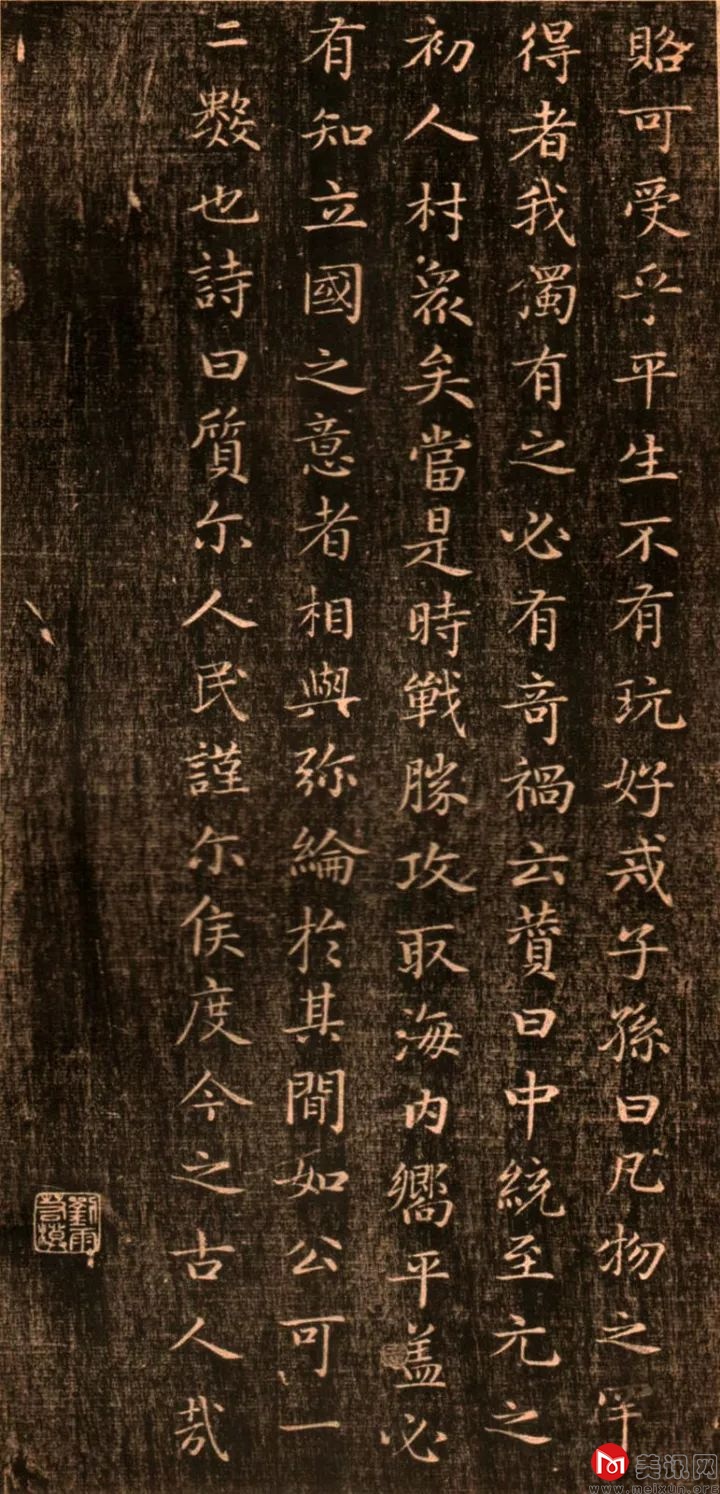 賂可受乎平生不有玩好戒子孫曰凡物之罕
得者我獨有之必有奇禍云賛曰中統至元之
初人材衆矣當是時戰勝攻取海内嚮平蓋必
有知立國之意者相與弥綸於其間如公可一
二數也詩曰質尔人民謹尔侯度今之古人哉
美讯网
www.meixun.org